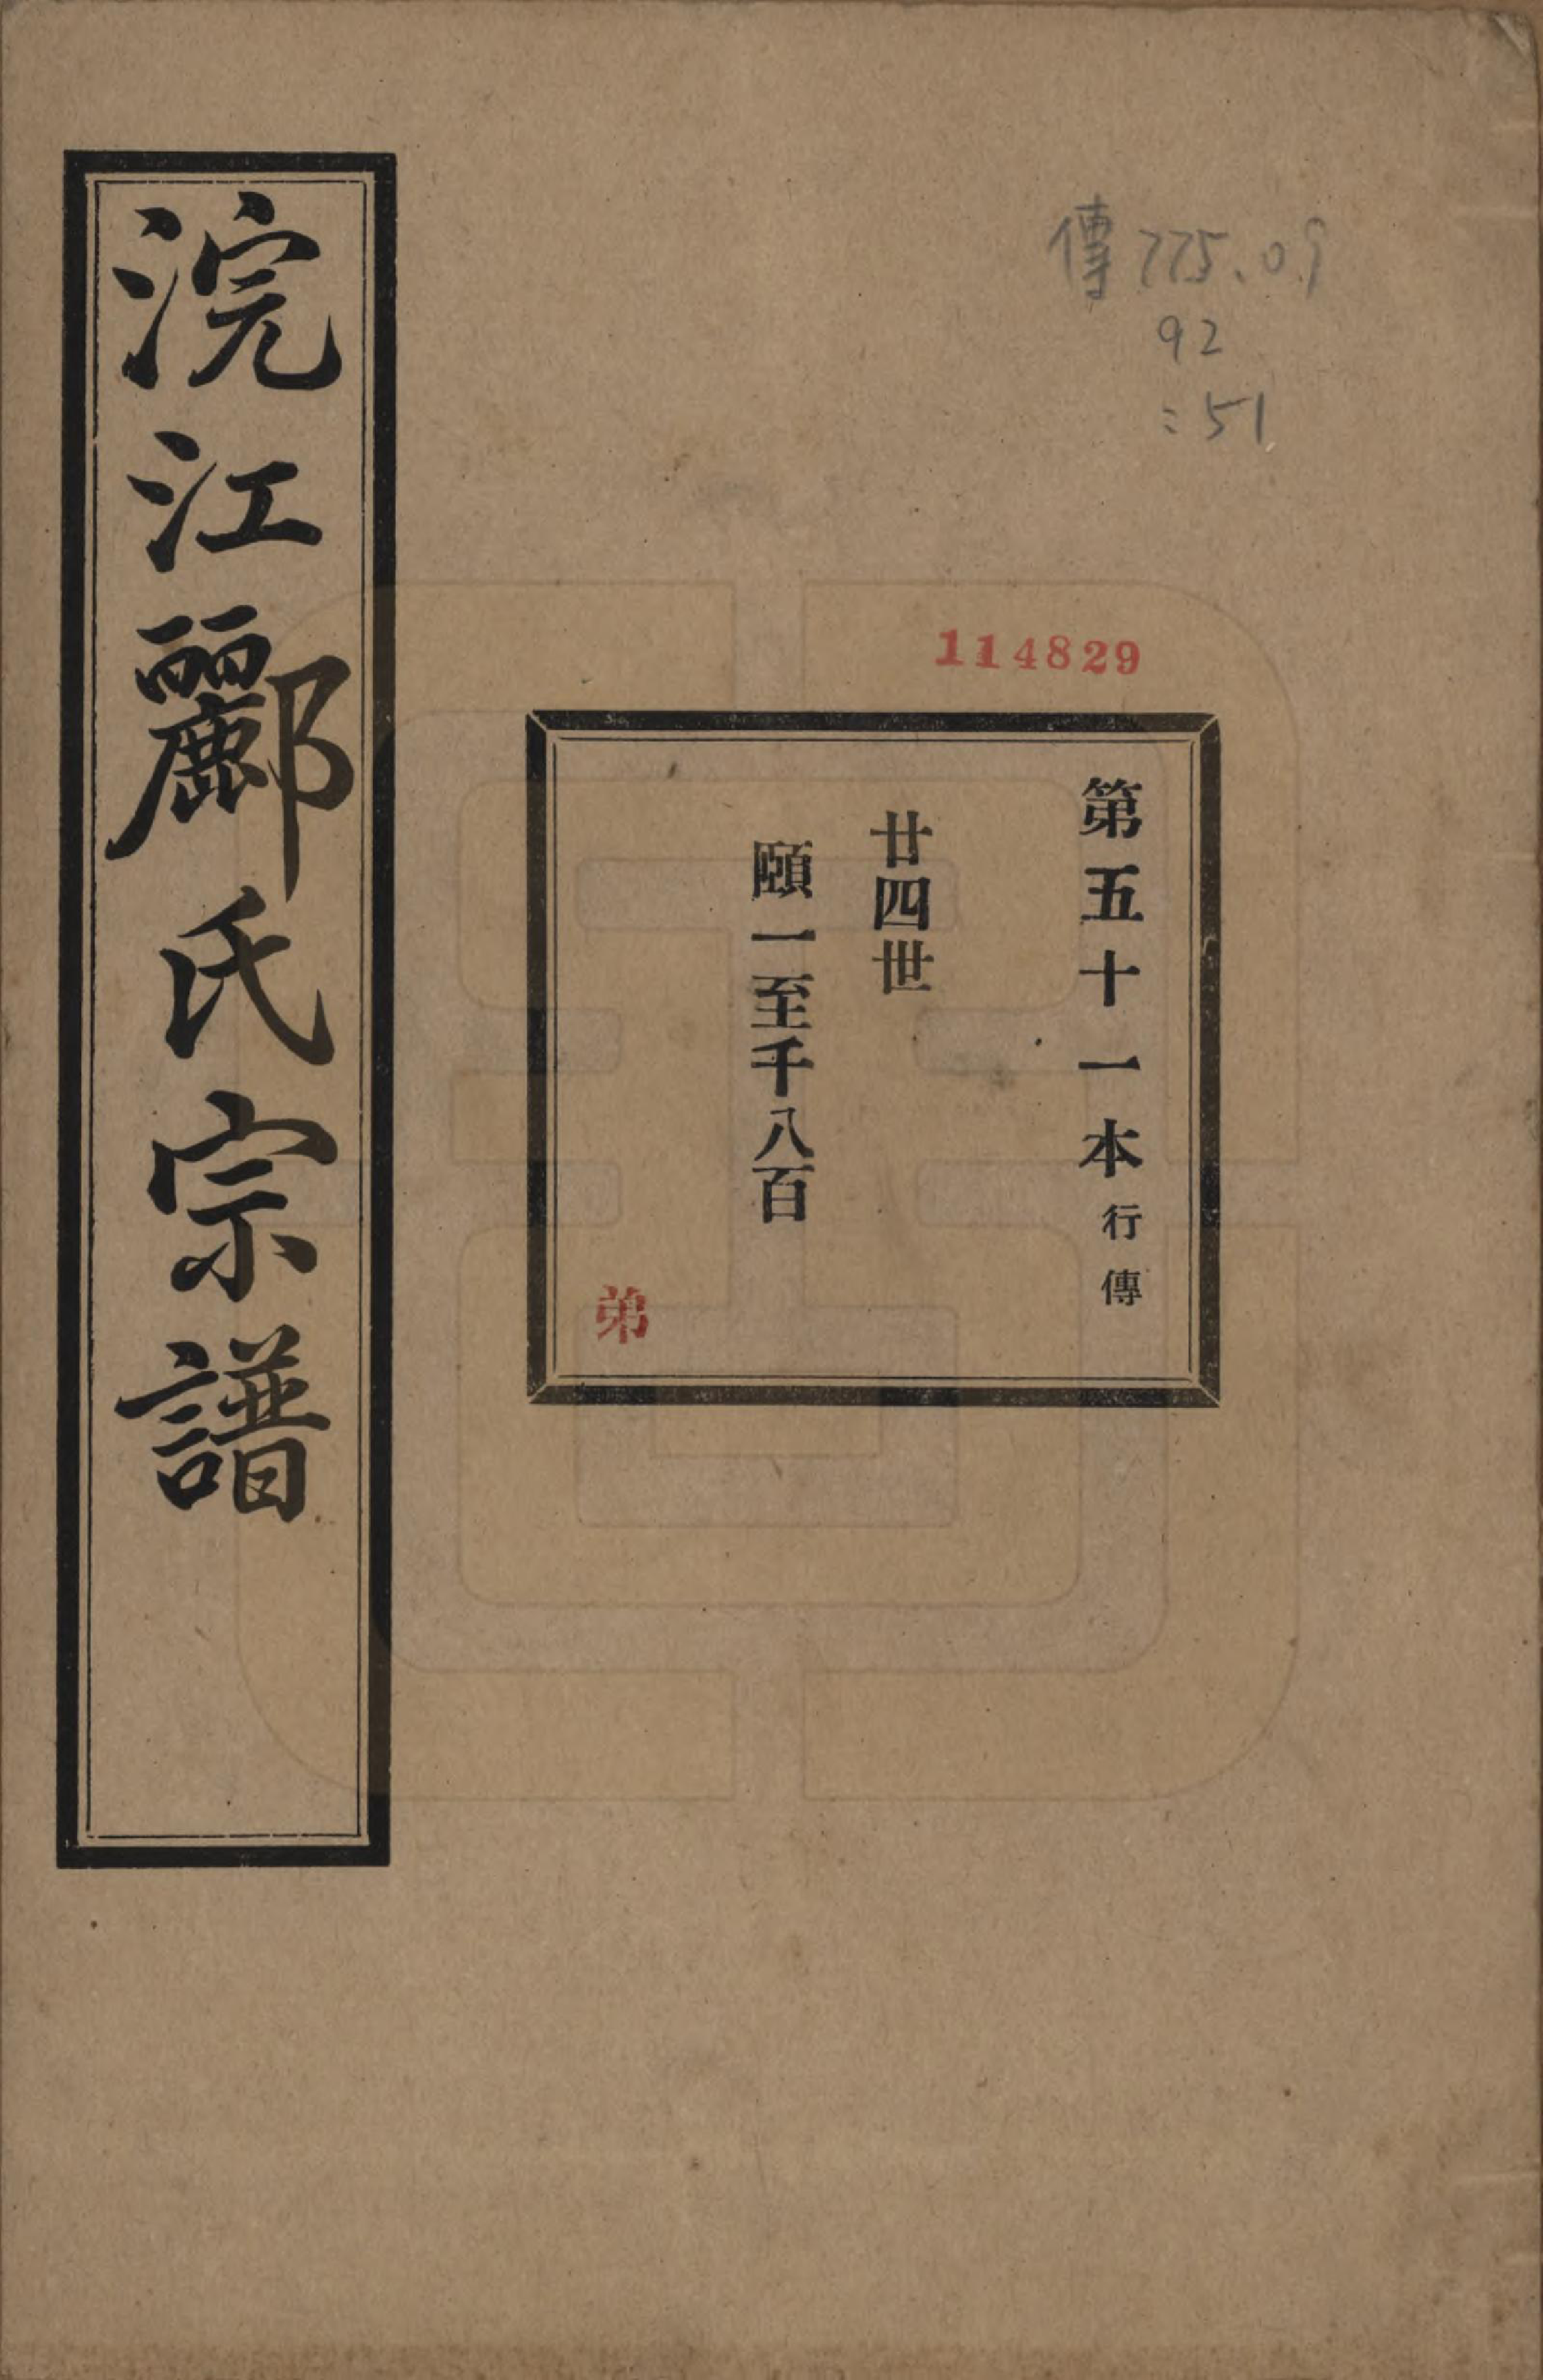 浣江酈氏宗譜
傳 775.09
92
:51
114829
第五十一本 行傳
廿四世
頤一至千八百
弟